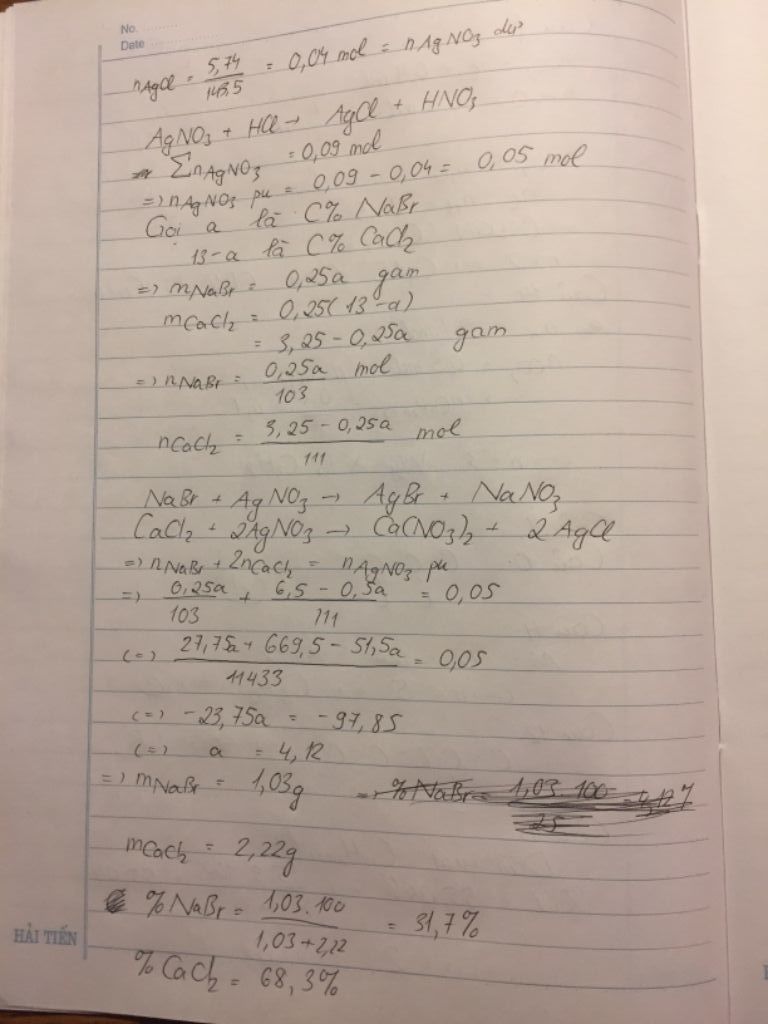 No.
Date
nAgCl = 5,74 / 143,5 = 0,04 mol = nAgNO3 dư
AgNO3 + HCl → AgCl + HNO3
Σ nAgNO3 = 0,09 mol
=) nAgNO3 pu = 0,09 - 0,04 = 0,05 mol
Gọi a là C% NaBr
13-a là C% CaCl2
=) mNaBr = 0,25a gam
mCaCl2 = 0,25(13-a)
= 3,25 - 0,25a gam
=) nNaBr = 0,25a / 103 mol
nCaCl2 = 3,25 - 0,25a / 111 mol
NaBr + AgNO3 → AgBr + NaNO3
CaCl2 + 2AgNO3 → Ca(NO3)2 + 2AgCl
=) nNaBr + 2nCaCl2 = nAgNO3 pu
=) 0,25a / 103 + 6,5 - 0,5a / 111 = 0,05
(=) 27,75a + 669,5 - 51,5a / 11433 = 0,05
(=) -23,75a = -97,85
(=) a = 4,12
=) mNaBr = 1,03g =) %NaBr = 1,03.100 / 25 = 4,12%
mCaCl2 = 2,22g
%NaBr = 1,03.100 / 1,03+2,22 = 31,7%
%CaCl2 = 68,3%
HẢI TIẾN